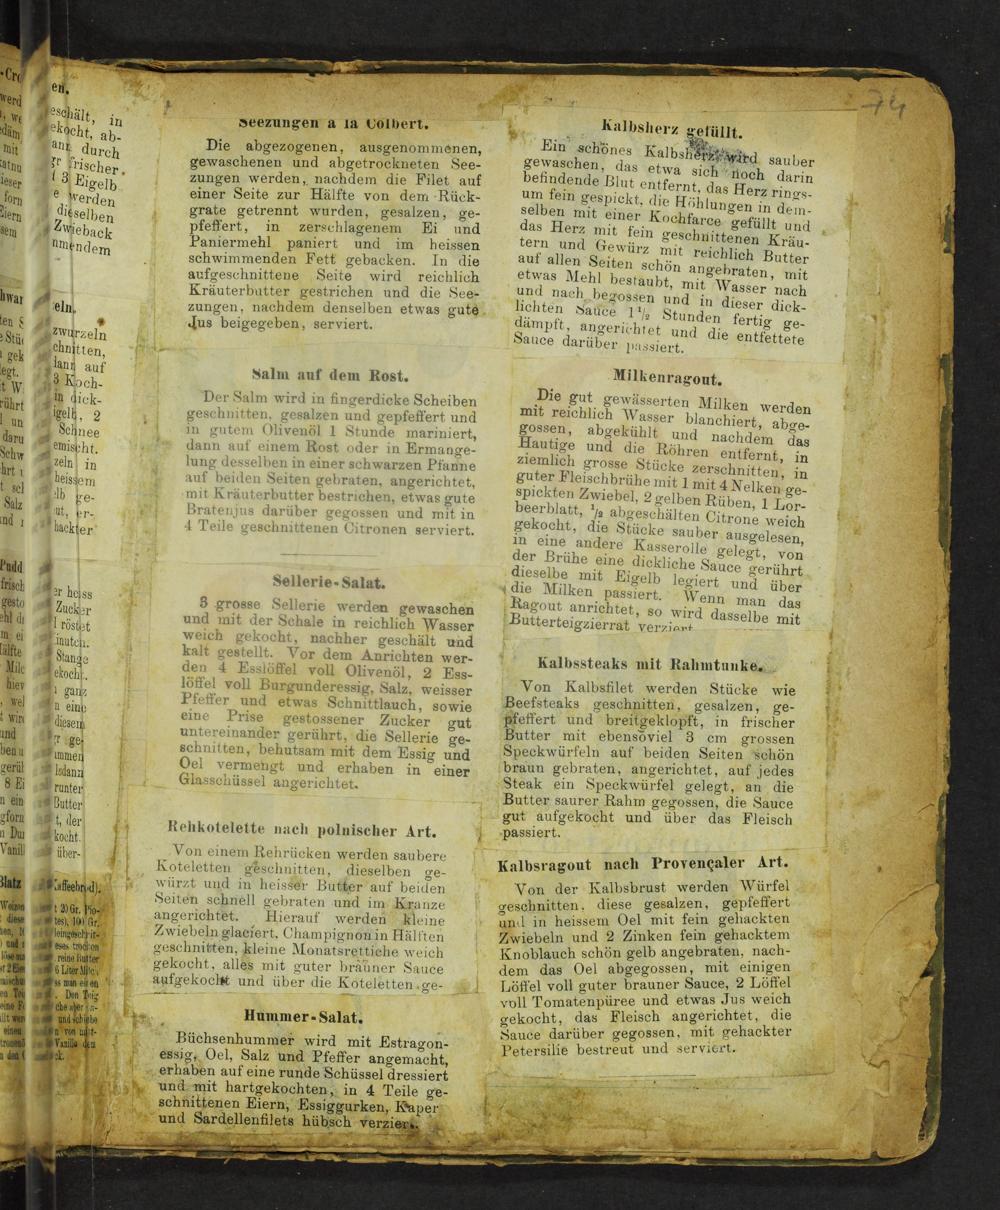 74
Seezungen a la Colbert.
Die abgezogenen, ausgenommenen,
gewaschenen und abgetrockneten See-
zungen werden, nachdem die Filet auf
einer Seite zur Hälfte von dem Rück-
grate getrennt wurden, gesalzen, ge-
pfeffert, in zerschlagenem Ei und
Paniermehl paniert und im heissen
schwimmenden Fett gebacken. In die
aufgeschnittene Seite wird reichlich
Kräuterbutter gestrichen und die See-
zungen, nachdem denselben etwas gute
Jus beigegeben, serviert.
Salm auf dem Rost.
Der Salm wird in fingerdicke Scheiben
geschnitten, gesalzen und gepfeffert und
in gutem Olivenöl 1 Stunde mariniert,
dann auf einem Rost oder in Ermange-
lung desselben in einer schwarzen Pfanne
auf beiden Seiten gebraten, angerichtet,
mit Kräuterbutter bestrichen, etwas gute
Bratenjus darüber gegossen und mit in
4 Teile geschnittenen Citronen serviert.
Sellerie-Salat.
3 grosse Sellerie werden gewaschen
und mit der Schale in reichlich Wasser
weich gekocht, nachher geschält und
kalt gestellt. Vor dem Anrichten wer-
den 4 Esslöffel voll Olivenöl, 2 Ess-
löffel voll Burgunderessig, Salz, weisser
Pfeffer und etwas Schnittlauch, sowie
eine Prise gestossener Zucker gut
untereinander gerührt, die Sellerie ge-
schnitten, behutsam mit dem Essig und
Oel vermengt und erhaben in einer
Glasschüssel angerichtet.
Rehkotelette nach polnischer Art.
Von einem Rehrücken werden saubere
Koteletten geschnitten, dieselben ge-
würzt und in heisser Butter auf beiden
Seiten schnell gebraten und im Kranze
angerichtet. Hierauf werden kleine
Zwiebeln glaciert, Champignon in Hälften
geschnitten, kleine Monatsrettiche weich
gekocht, alles mit guter brauner Sauce
aufgekocht und über die Koteletten ge-
Hummer-Salat.
Büchsenhummer wird mit Estragon-
essig, Oel, Salz und Pfeffer angemacht,
erhaben auf eine runde Schüssel dressiert
und mit hartgekochten, in 4 Teile ge-
schnittenen Eiern, Essiggurken, Kaper
und Sardellenfilets hübsch verziert.
Kalbsherz gefüllt.
Ein schönes Kalbsherz wird sauber
gewaschen, das etwa sich noch darin
befindende Blut entfernt, das Herz rings-
um fein gespickt, die Höhlungen in dem-
selben mit einer Kochfarce gefüllt und
das Herz mit fein geschnittenen Kräu-
tern und Gewürz mit reichlich Butter
auf allen Seiten schön angebraten, mit
etwas Mehl bestaubt, mit Wasser nach
und nach begossen und in dieser dick-
lichten Sauce 1½ Stunden fertig ge-
dämpft, angerichtet und die entfettete
Sauce darüber passiert.
Milkenragout.
Die gut gewässerten Milken werden
mit reichlich Wasser blanchiert, abge-
gossen, abgekühlt und nachdem das
Hautige und die Röhren entfernt, in
ziemlich grosse Stücke zerschnitten, in
guter Fleischbrühe mit 1 mit 4 Nelken ge-
spickten Zwiebel, 2 gelben Rüben, 1 Lor-
beerblatt, ½ abgeschälten Citrone weich
gekocht, die Stücke sauber ausgelesen,
in eine andere Kasserolle gelegt, von
der Brühe eine dickliche Sauce gerührt
dieselbe mit Eigelb legiert und über
die Milken passiert. Wenn man das
Ragout anrichtet, so wird dasselbe mit
Butterteigzierrat verziert
Kalbssteaks mit Rahmtunke.
Von Kalbsfilet werden Stücke wie
Beefsteaks geschnitten, gesalzen, ge-
pfeffert und breitgeklopft, in frischer
Butter mit ebensoviel 3 cm grossen
Speckwürfeln auf beiden Seiten schön
braun gebraten, angerichtet, auf jedes
Steak ein Speckwürfel gelegt, an die
Butter saurer Rahm gegossen, die Sauce
gut aufgekocht und über das Fleisch
passiert.
Kalbsragout nach Provençaler Art.
Von der Kalbsbrust werden Würfel
geschnitten, diese gesalzen, gepfeffert
und in heissem Oel mit fein gehackten
Zwiebeln und 2 Zinken fein gehacktem
Knoblauch schön gelb angebraten, nach-
dem das Oel abgegossen, mit einigen
Löffel voll guter brauner Sauce, 2 Löffel
voll Tomatenpüree und etwas Jus weich
gekocht, das Fleisch angerichtet, die
Sauce darüber gegossen, mit gehackter
Petersilie bestreut und serviert.